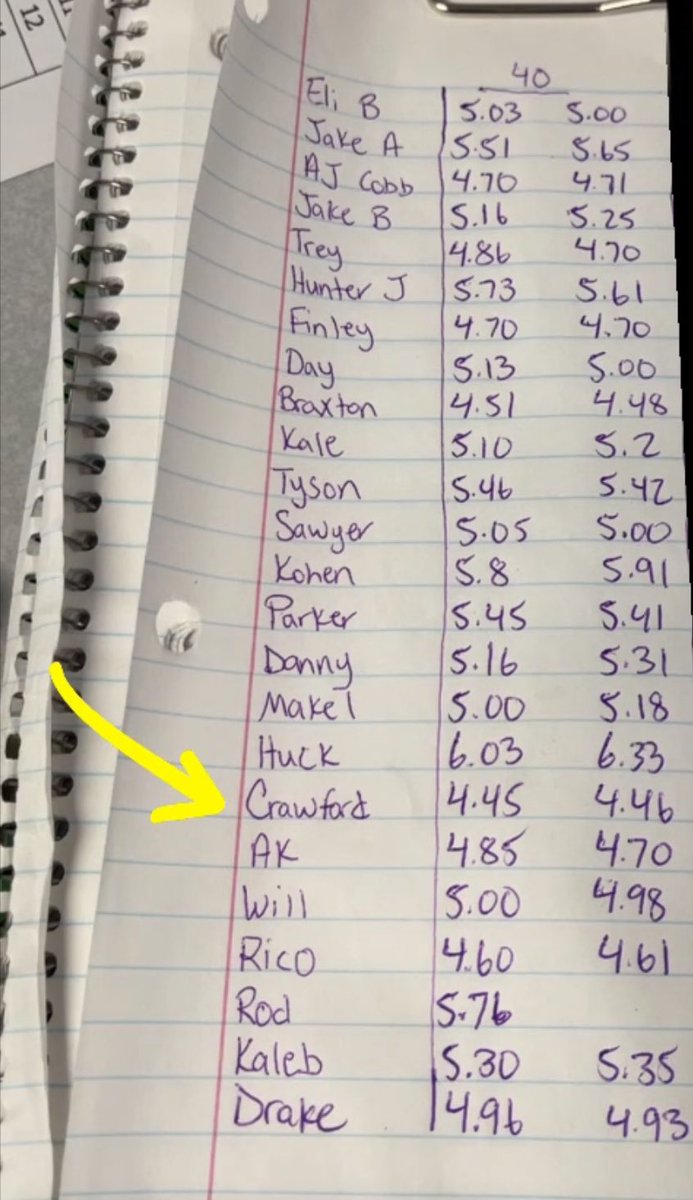 12
40
Eli B 5.03 5.00
Jake A 5.51 5.65
AJ Cobb 4.70 4.71
Jake B 5.16 5.25
Trey 4.86 4.70
Hunter J 5.73 5.61
Finley 4.70 4.70
Day 5.13 5.00
Braxton 4.51 4.48
Kale 5.10 5.2
Tyson 5.46 5.42
Sawyer 5.05 5.00
Kohen 5.8 5.91
Parker 5.45 5.41
Danny 5.16 5.31
Makel 5.00 5.18
Huck 6.03 6.33
Crawford 4.45 4.46
AK 4.85 4.70
Will 5.00 4.98
Rico 4.60 4.61
Rod 5.76
Kaleb 5.30 5.35
Drake 4.96 4.93